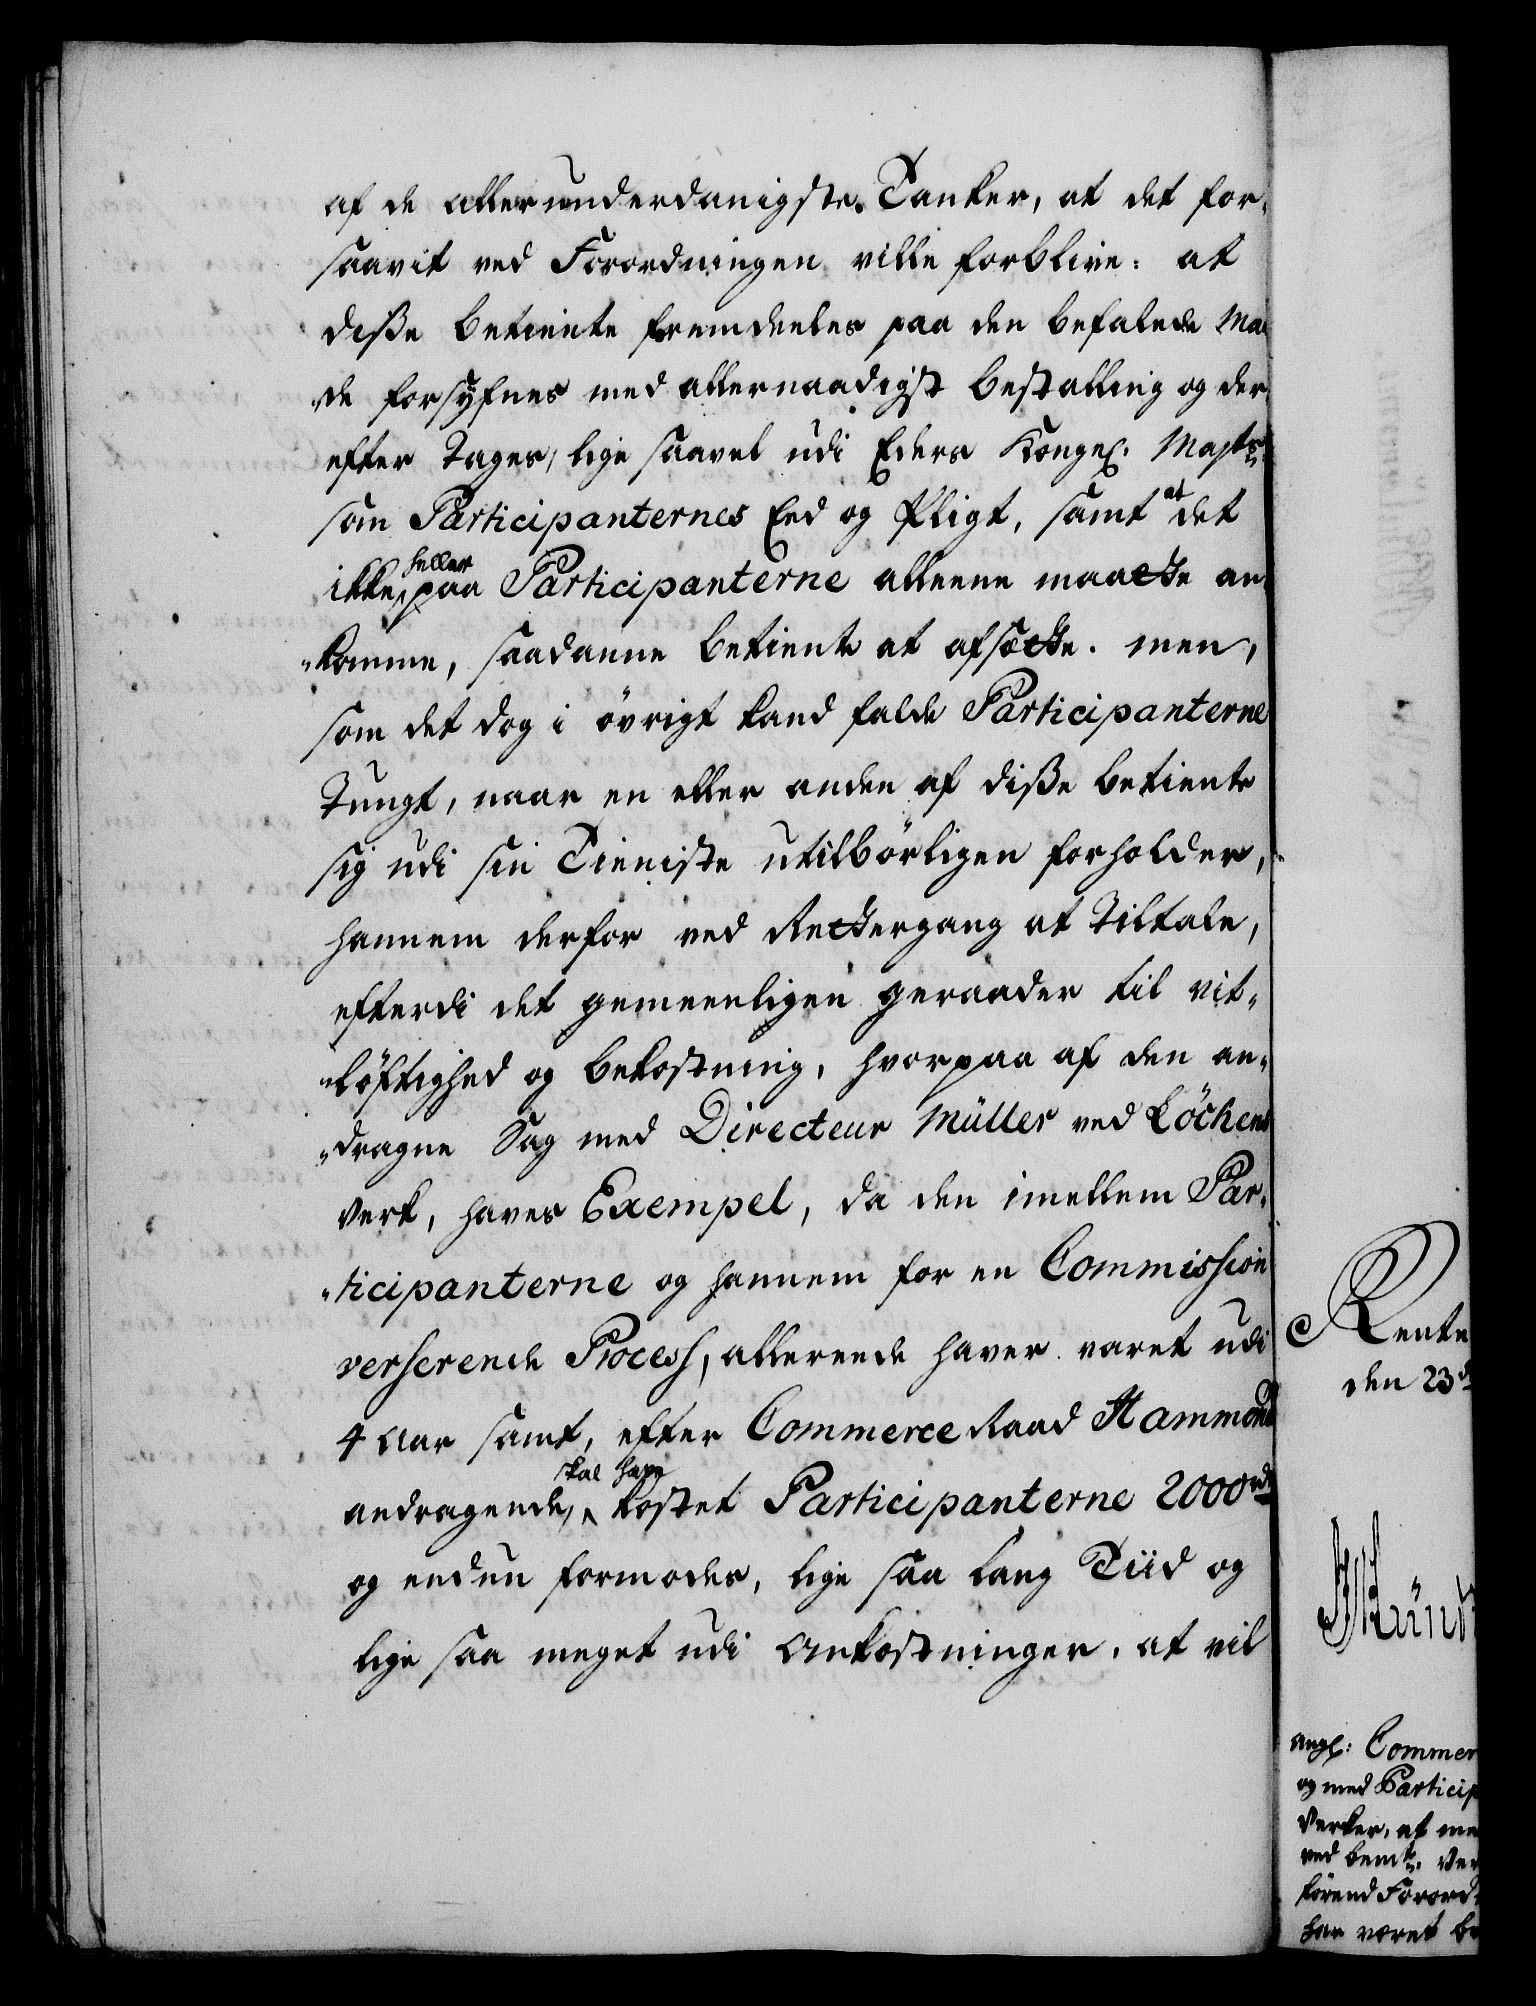 af de allerunderdanigste Tanker, at det for-
saavit ved Forordningen ville forblive: at
disse betiente fremdeeles paa den befalede Maa-
de forsyfnes med allernaadigst bestalling og der
efter Tages, lige saavel udi Eders Kongel. Majts
som Participanternes Eed og Pligt, samt at det
ikke heller paa Participanterne alleene maatte an-
komme, saadanne betiente at afsætte. men,
som det dog i övrigt kand falde Participanterne
Tungt, naar en eller anden af disse betiente
sig udi sin Tieniste utilbörligen forholder,
hannem derfor ved Rettergang at Tiltale,
efterdi det gemeenligen geraader til vit-
löftighed og bekostning, hvorpaa af den an-
dragne Sag med Directeur Müller ved Löchens
Verk, haves Exempel, da den imellem Par-
ticipanterne og hannem for en Commission
verserende Process, allereede haver varet udi
4 Aar samt, efter Commerce Raad Hammonds
andragende, skal have kostet Participanterne 2000 rd
og endnu formodes, lige saa lang Tiid og
lige saa meget udi Ankostninger, at vil
Rente
den 23d
angl: Commer
og med Particip
Verker, at me
ved bemte. Ver
förend Forord
har været be